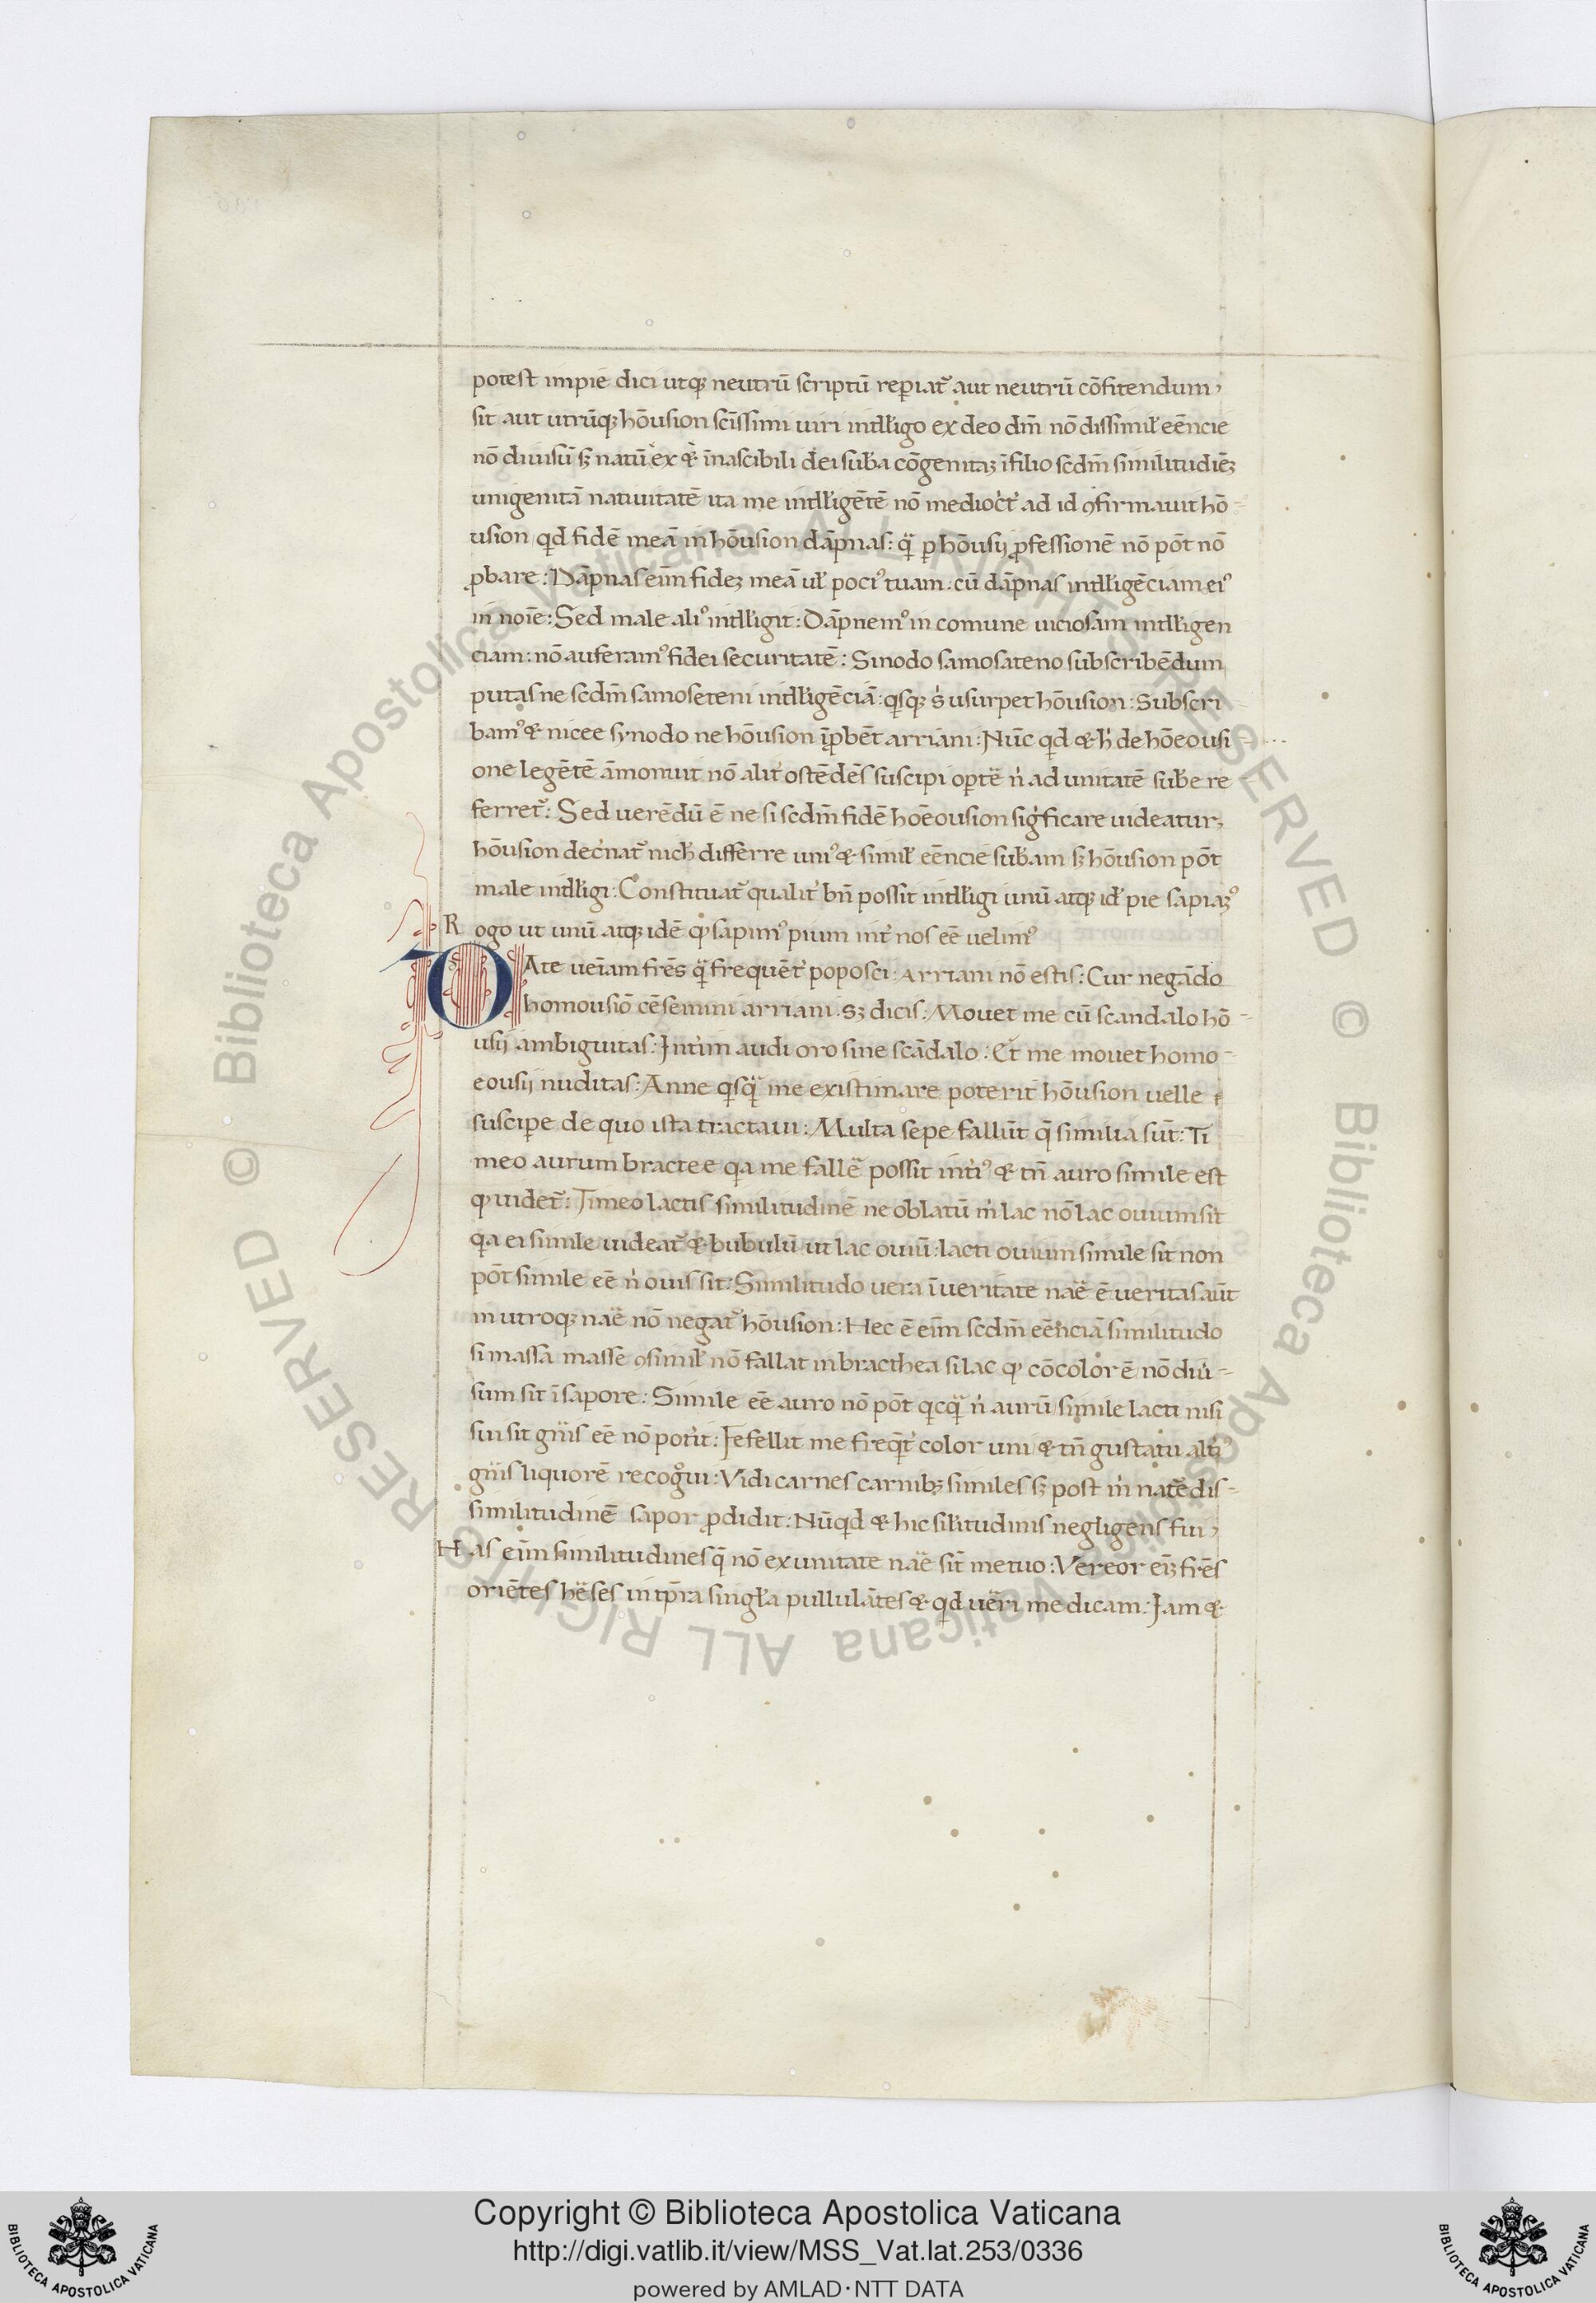 potest impie dici utqꝫ neutrū scriptū reꝑiat᷑ aut neutrū cōfitendum,
sit aut utrūqꝫ hōusion sc̄issimi uiri intƚƚigo ex deo dm̄ nō dissimiƚ eēncie
nō diuisū sꝫ natū ex & īnascibili dei sub̄a cōgenitaꝫ ī filio scdm̄ similitudiēꝫ
unigenitā natiuitatē ita me intƚƚigētē nō medioct᷑ ad id ꝯfirmauit hō-
usion qd fidē meā in hōusion dāpnas: q̄ ꝑ hōusij ꝓfessionē nō pōt nō
ꝓbare: Dāpnas eīm fideꝫ meā uƚ poci᷒ tuam: cū dāpnas intƚƚigēciam ei᷒
in noīe: Sed male ali᷒ intƚƚigit: Dāpnem᷒ in comune uiciosam intƚƚigen
ciam: nō auferam᷒ fidei securitatē: Sinodo samosateno subscribēdum
putas ne scdm̄ samoseteni intƚƚigēciā: qsqꝫ s᷑ usurpet hōusion: Subscri
bam᷒ & nicee synodo ne hōusion īꝓbēt arriani: Nūc qd & h᷑ de hōeousi-
one legētē āmonuit nō alit᷑ ostēdēs suscipi oꝑtē n᷑ ad unitatē sub̄e re
ferret᷑: Sed uerēdū ē ne si scdm̄ fidē hoēousion sigficare uideatur,
hōusion dec̄nat᷑ nich̄ differre uni᷒ & simiƚ eēncie sub̄am sꝫ hōusion pōt
male intƚƚigi: Constituat᷑ qualit᷑ bn̄ possit intƚƚigi unū atqꝫ id̄ pie sapiaꝫ᷒
Rogo ut unū atqꝫ idē qᷤ sapim᷒ pium int᷑ nos eē uelim᷒
DAte ueīam fr̄es q̄ frequēt᷑ poposci: Arriani nō estis: Cur negādo
homousiō cēsemini arriani. sꝫ dicis: Mouet me cū scandalo hō-
usij ambiguitas: Intīm audi oro sine scādalo: Et me mouet homo-
eousij nuditas: Anne qsq̄ me existimare poterit hōusion uelle
susciꝑe de quo ista tractaui: Multa sepe fallūt q̄ similia sūt: Ti
meo aurum bractee qa me fallē possit int᷑i᷒ & tn̄ auro simile est
qᷤ uidet᷑: Timeo lactis similitudinē ne oblatū m᷑ lac nō lac ouium sit
qa ei simile uideat᷑ & bubulū ut lac ouiū: lacti ouium simile sit non
pōt simile eē n᷑ ouis sit: Similitudo uera ī ueritate naē ē ueritas aūt
in utroqꝫ naē nō negat᷑ hōusion: Hec ē eīm scdm̄ eēnciā similitudo
si massa masse ꝯsimiƚ nō fallat in bracthea si lac qᷤ cōcolor ē nō diu᷑-
sum sit ī sapore: Simile eē auro nō pōt qcq̄ n᷑ aurū simile lacti nisi
sui sit gn̄is eē nō pot᷑it: Fefellit me freq̄t᷑ color uini & tn̄ gustatu alt᷑i᷒
gn̄is liquorē recogui: Vidi carnes carnibꝫ similes sꝫ post m᷑ natē dis-
similitudinē sapor ꝓdidit: Nūqd & hic siƚitudinis negligens fui,
Has eīm similitudines q̄ nō ex unitate naē sīt metuo: Vereor eīꝫ fr̄es
oriētes hēses in tp̄ra singƚa pullulātes & qd uēri me dicam: Iam &
Copyright © Biblioteca Apostolica Vaticana
http://digi.vatlib.it/view/MSS_Vat.lat.253/0336
powered by AMLAD·NTT DATA